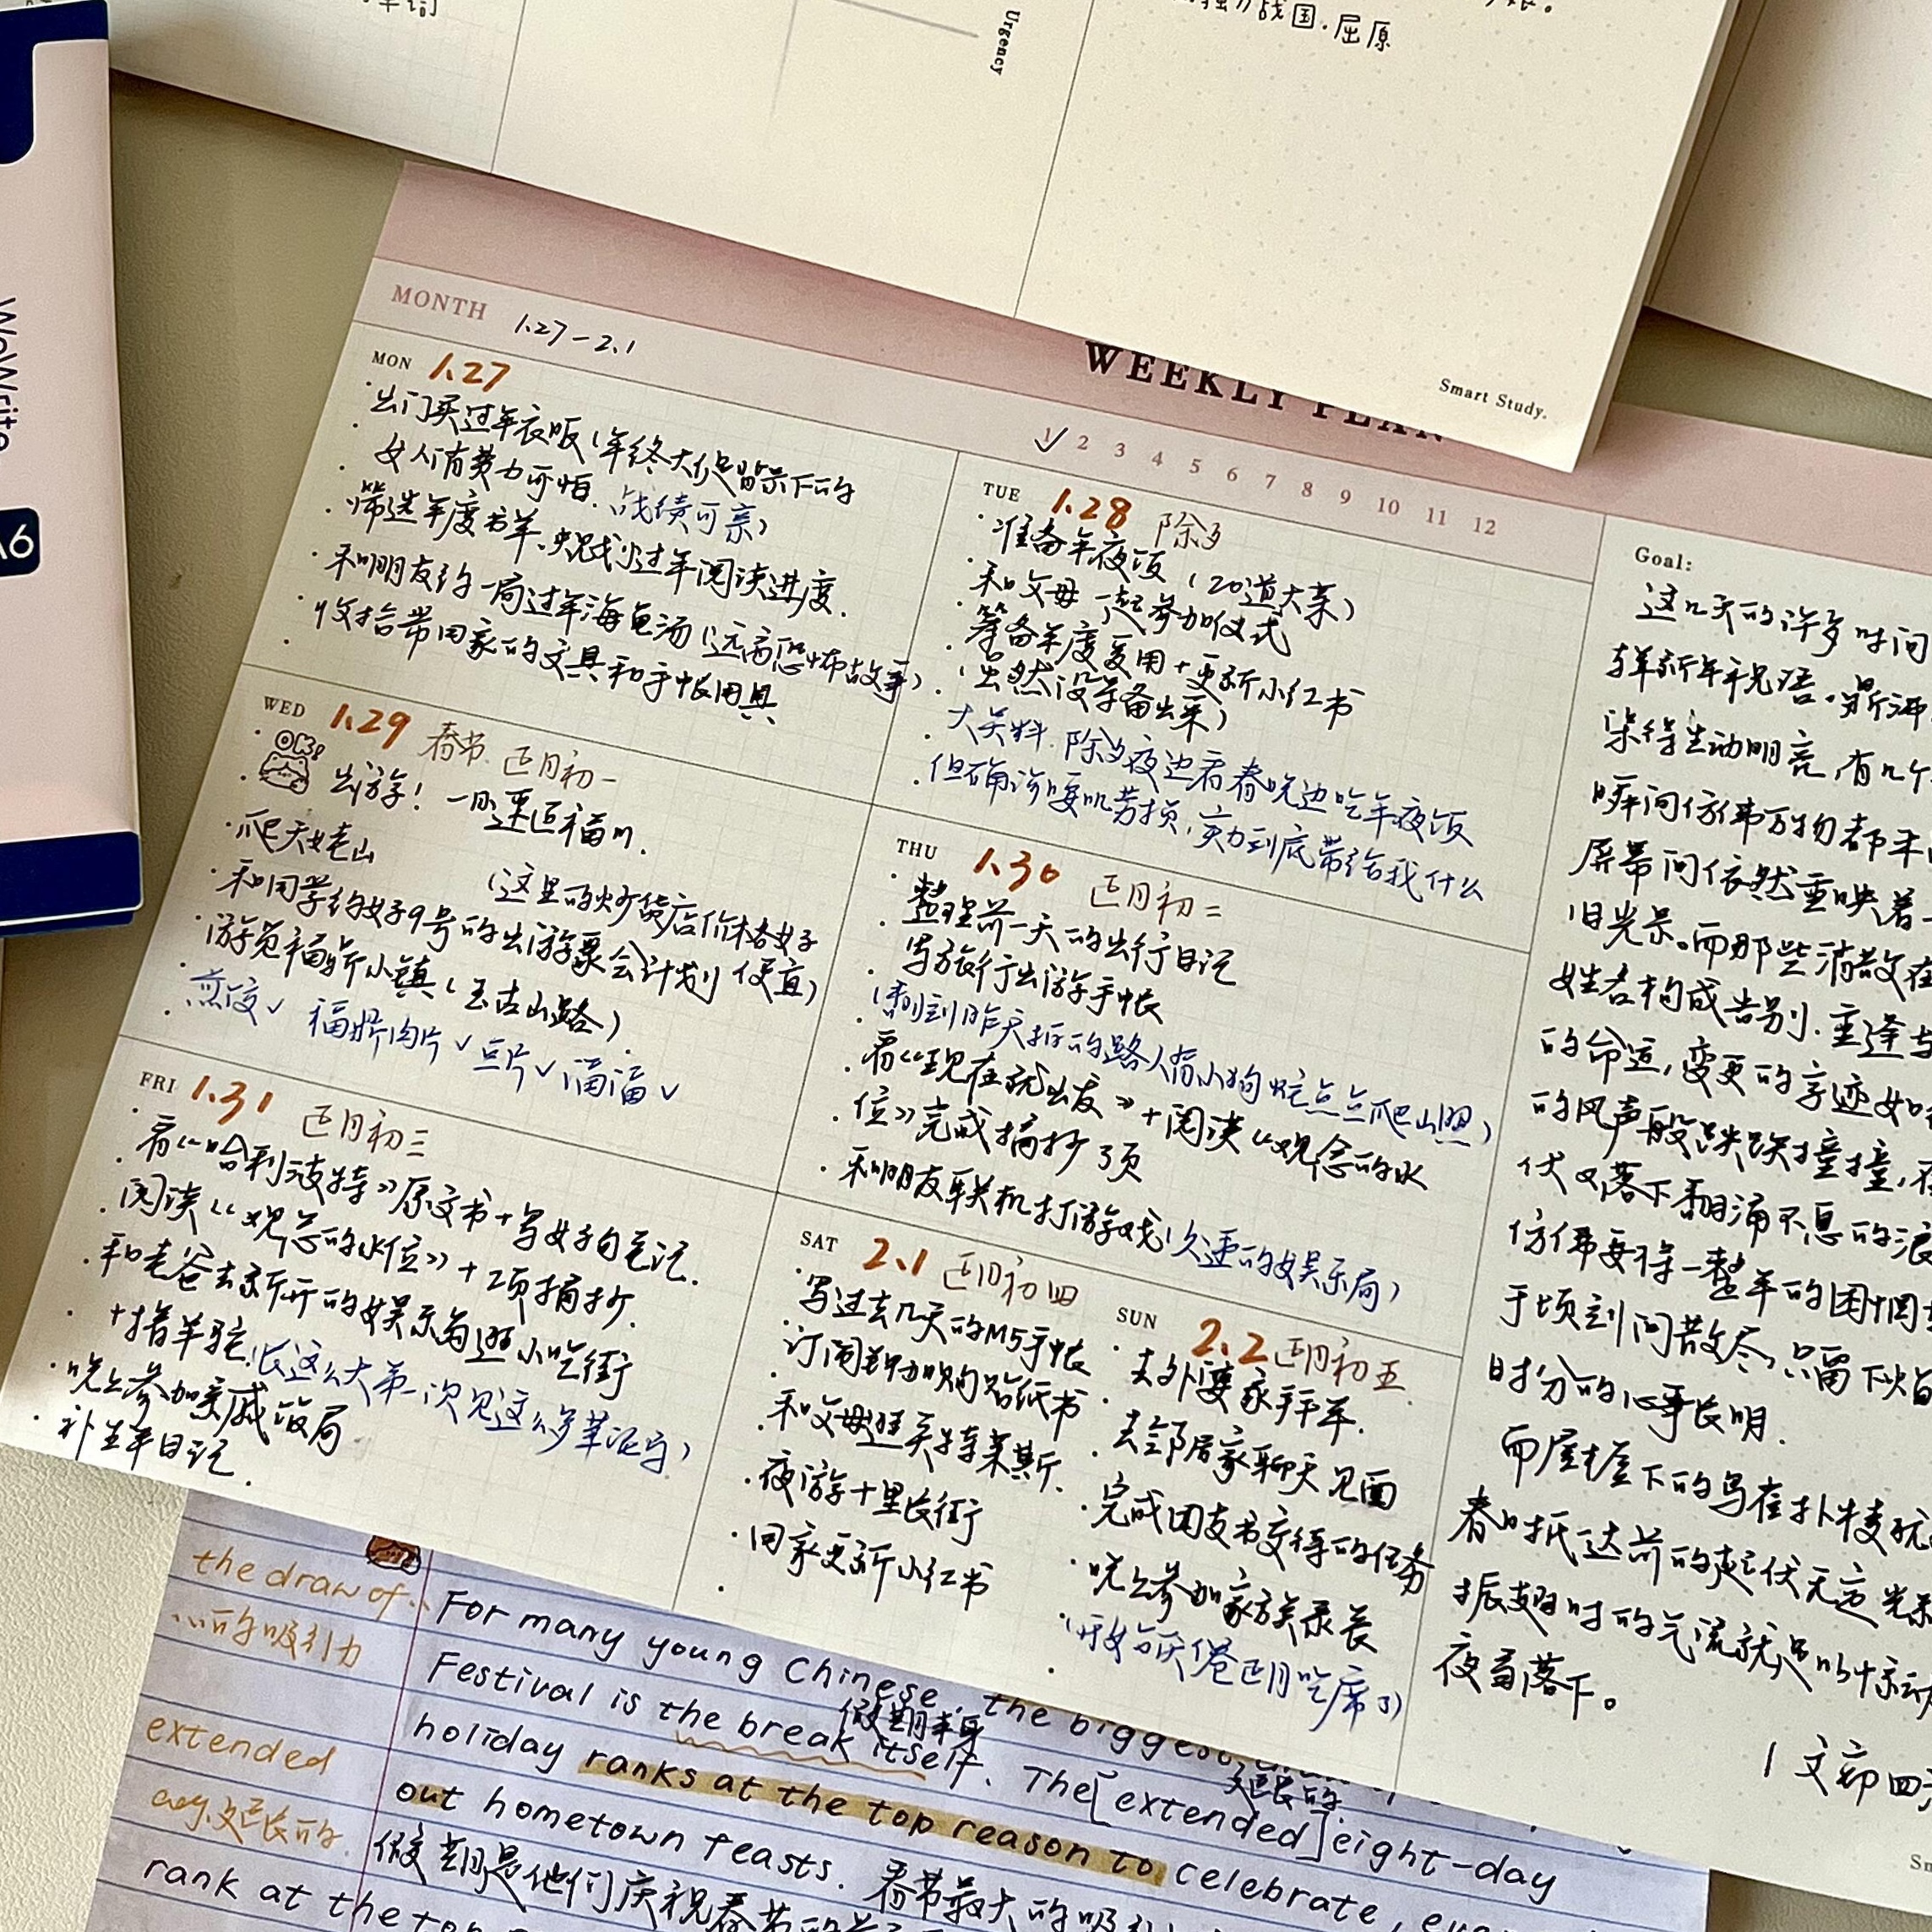 Urgency
战国·屈原
Smart Study.
WeWrite
A6
WEEKLY PLAN
MONTH 1.27-2.1
1 2 3 4 5 6 7 8 9 10 11 12
MON 1.27
·出门买过年衣服(年终大促留示下的
女人消费力可怕.战绩可亲)
·筛选年度书单.规划过年阅读进度.
·和朋友约一局过年海龟汤(远离恐怖故事)
·收拾带回家的文具和手帐用具
TUE 1.28 除夕
·准备年夜饭(20道大菜)
·和父母一起参加仪式
·筹备年度爱用+更新小红书
(虽然没准备出来)
·大关料.除夕夜边看春晚边吃年夜饭
·但确诊腰肌劳损,实力到底带给我什么
WED 1.29 春节.正月初一
OK!
·出游!一日速通福州.
·爬天姥山
(这里的炒货店价格好
便宜)
·和同学约好9号的出游聚会计划
·游览福鼎小镇(玉古山路)
·煎饺✓ 福鼎肉片✓豆片✓
THU 1.30 正月初二
·整理前一天的出行日记
写旅行出游手帐
(刷到昨天拍的路人简小狗 点点爬山照)
·看《现在就出发》+阅读《观念的水
位》完成摘抄3页
·和朋友联机打游戏(久违的娱乐局)
FRI 1.31 正月初三
·看《哈利波特》原文书+写好句笔记.
·阅读《观念的水位》+2页摘抄.
·和老爸去新开的娱乐角逛小吃街
+撸羊驼.(长这么大第一次见这么多草泥马)
·晚上参加亲戚饭局
·补五年日记.
SAT 2.1 正月初四
·写过去几天的M5手帐
·订阅 加购贴纸书
·和父母逛奥特莱斯.
·夜游十里长街
·回家更新小红书
SUN 2.2 正月初五
·去外婆家拜年.
·去邻居家聊天见面
·完成团支书交待的任务
·晚上参加家族聚餐
(开始厌倦正月吃席了)
Goal:
这几天的许多时间
新年祝语.
染得生动明亮,有几个
瞬间仿佛万物都未
屏幕间依然重映着
旧光景。而那些消散在
姓名构成告别.重逢与
的命运,变更的字迹如
的风声般跌跌撞撞,
伏又落下翻涌不息的浪
仿佛要将一整年的困惘
于顷刻间散尽,只留下
时分的心事长明.
而屋檐下的乌雀扑棱
春时抵达前的起伏无定
振翅时的气流就足以惊动
夜幕落下。
the draw of..
…的吸引力
For many young Chinese, the biggest draw
Festival is the break itself. The [extended] eight-day
假期本身
延长的
holiday ranks at the top reason to celebrate,
extended
adj.延长的
out hometown feasts. 春节最大的吸引
假期是他们庆祝春节的
rank at the top